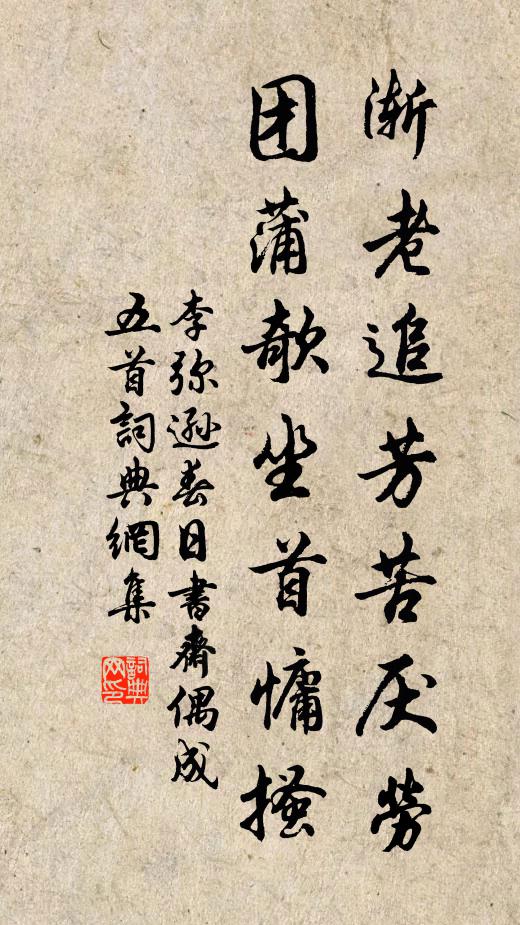 渐老追芳苦厌劳
团蒲欹坐首慵搔
李弥逊春日书斋偶成
五首词典網集
詞典网印